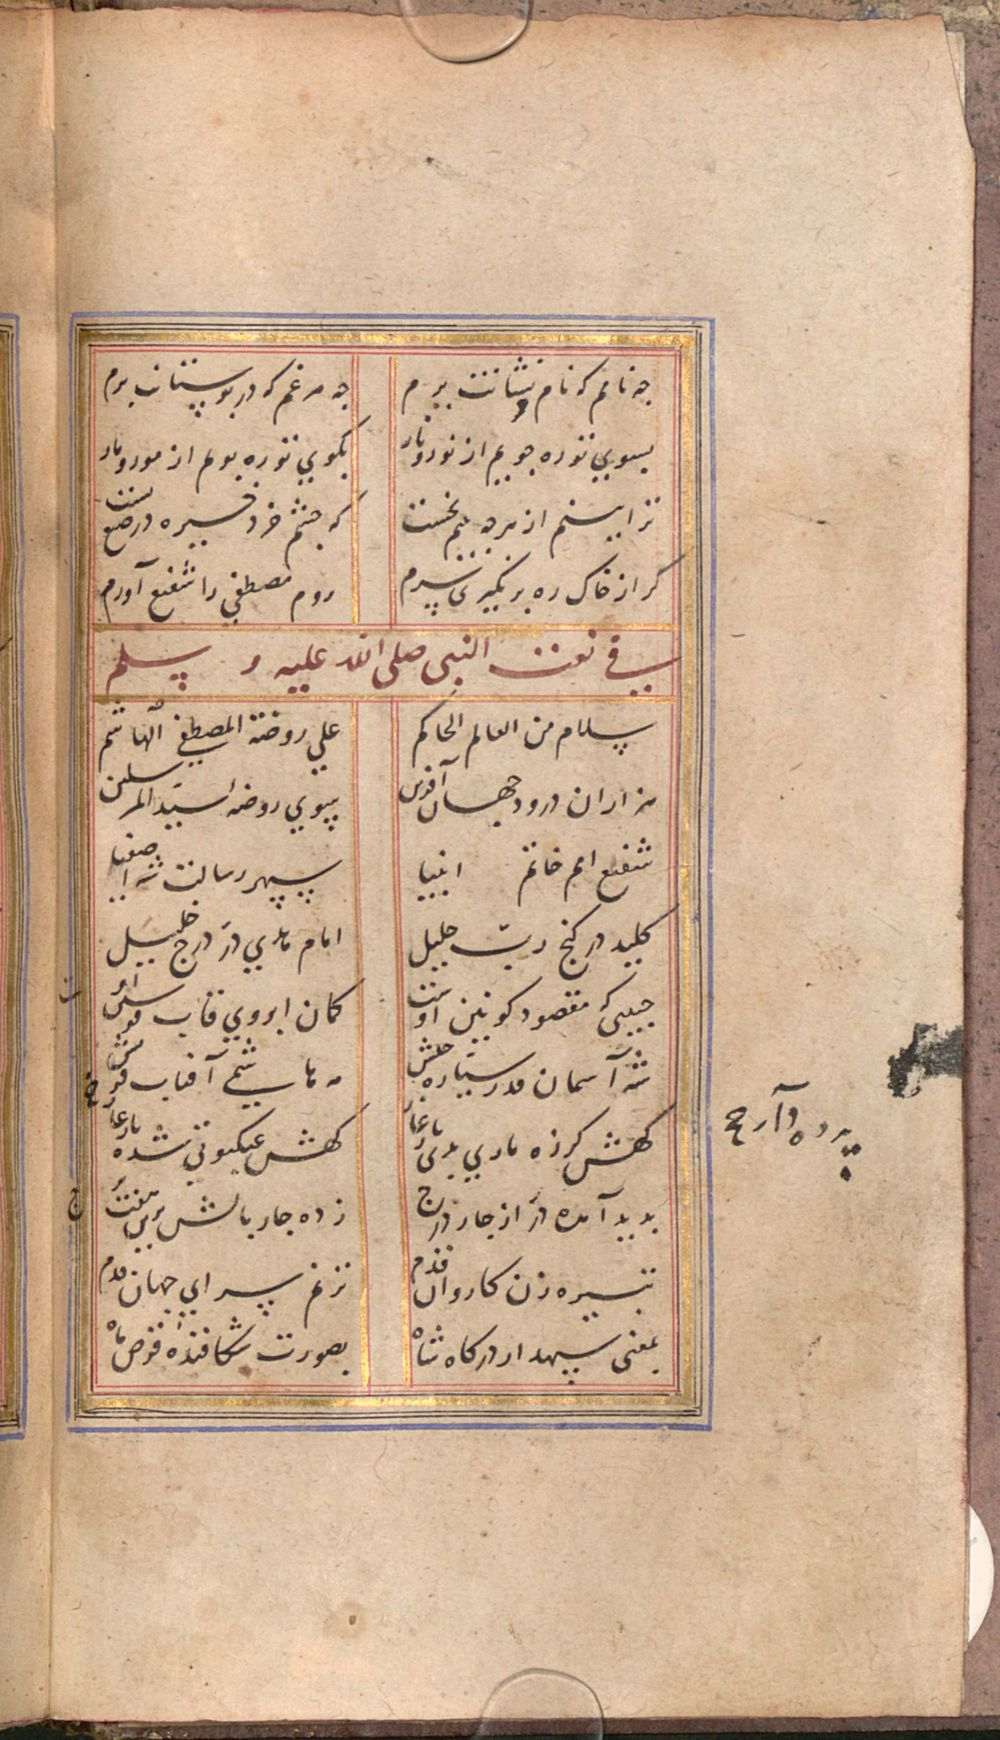 چه نامم که نام و نشانت برم
چه مرغم که در بوستانت برم
بسوی تو ره جویم از نور و نار
بکوی تو ره بویم از مور و مار
ترا بینم از هر چه بینم نخست
که چشم خرد خیره در صنع تست
کر از خاک ره بر نکیری سرم
روم مصطفی را شفیع آورم
فی نعت النبی صلی الله علیه و سلم
سلام من العالم الحاکم
علی روضة المصطفی الهاشم
هزاران درود جهان آفرین
بسوی روضه سید المرسلین
شفیع امم خاتم انبیا
سپهر رسالت شه اصفیا
کلید در کنج رب جلیل
امام هدی در درج خلیل
حبیبی که مقصود کونین اوست
کمان ابروی قاب قوسین اوست
شه آسمان قدر سیاره حلش
مه هاشمی آفتاب قرش
کهش کرزه ماری بدی یار غار
کهش عنکبوتی شده
بدید آمده در از چار درج
زده چار بالش برین هفت برج
نبیره زن کاروان قدم
ترنم سرای جهان قدم
بمعنی سپهدار درکاه شاه
بصورت شکافنده قرص ماه
پرده دار